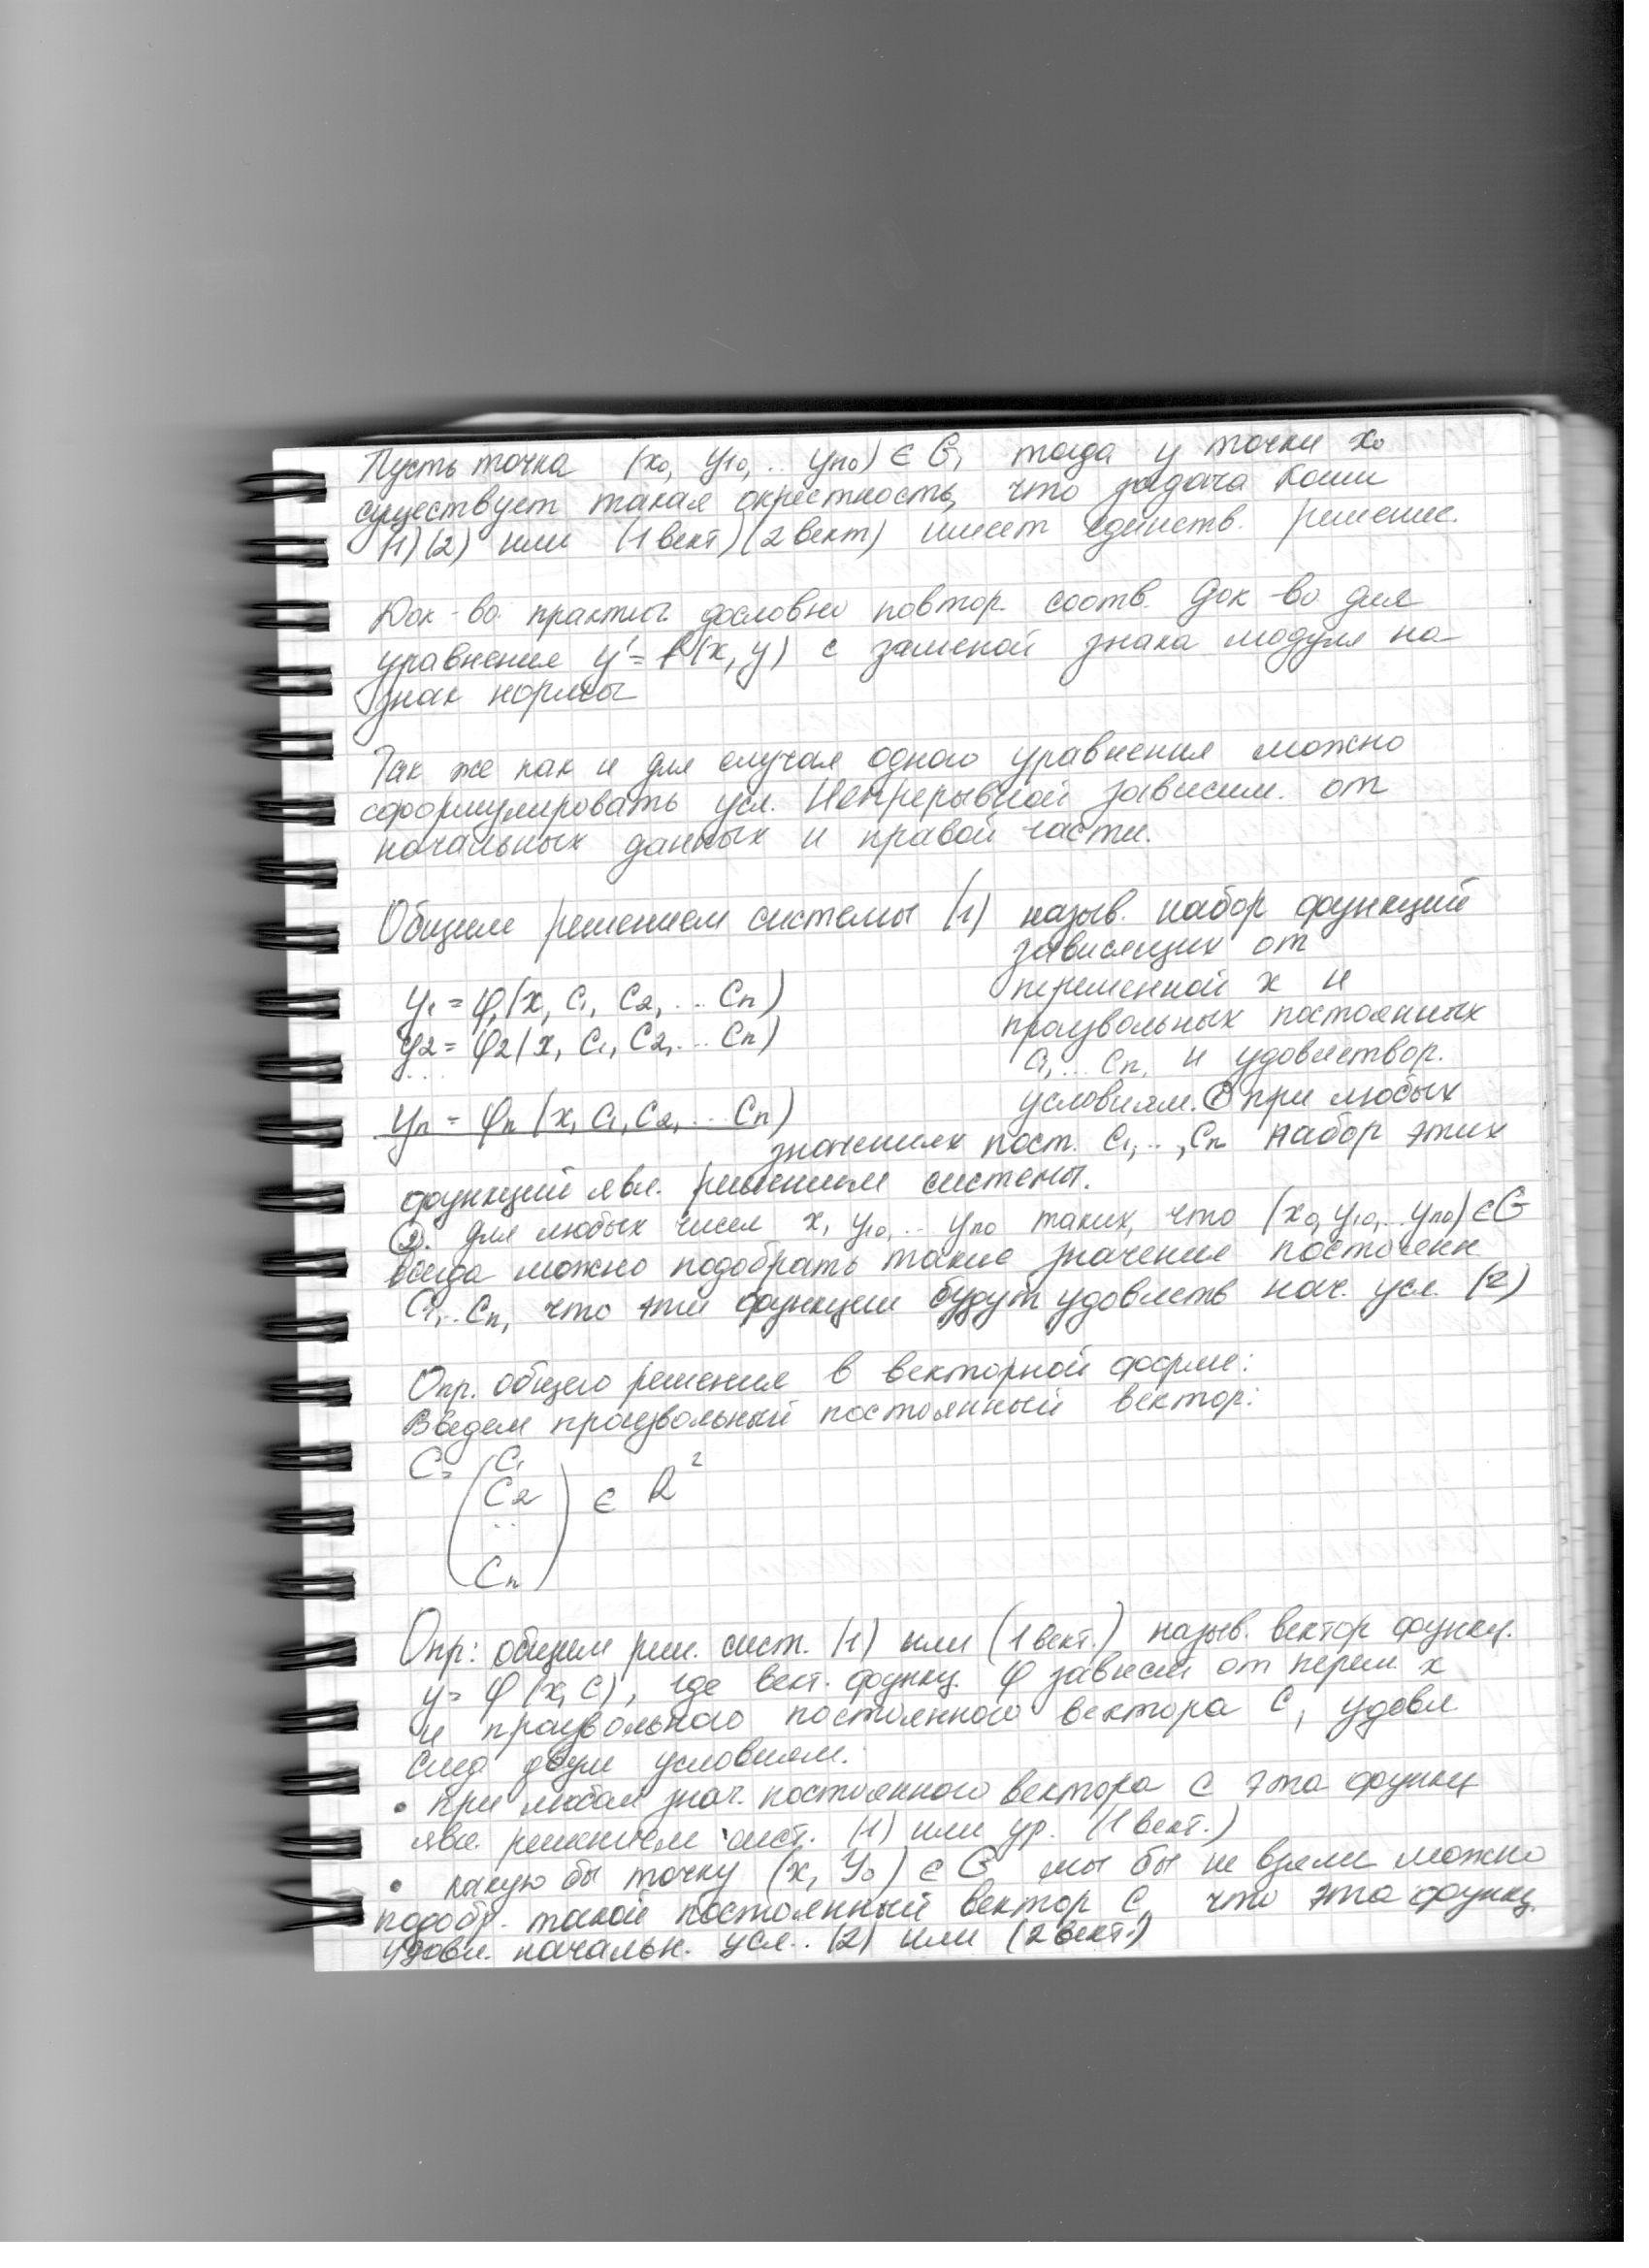 Пусть точка (x₀, y₁₀, .. yₙ₀) ∈ G, тогда у точки x₀
существует такая окрестность, что задача Коши
(1)(2) или (1 вект)(2 вект) имеет единств. решение.
Док-во практич. дословно повтор. соотв. док-во для
уравнения y' = f(x, y) с заменой знака модуля на
знак нормы
Так же как и для случая одного уравнения можно
сформулировать усл. Непрерывной зависим. от
начальных данных и правой части.
Общим решением системы (1) назыв. набор функций
зависящих от
переменной x и
y₁ = φ₁(x, C₁, C₂, ... Cₙ)
произвольных постоянных
y₂ = φ₂(x, C₁, C₂, ... Cₙ)
C₁, ... Cₙ, и удовлетвор.
...
условиям. ① при любых
yₙ = φₙ(x, C₁, C₂, ... Cₙ)
значениях пост. C₁, .., Cₙ набор этих
функций явл. решением системы.
②. для любых чисел x, y₁₀, .. yₙ₀ таких, что (x₀, y₁₀, .. yₙ₀) ∈ G
всегда можно подобрать такие значения постоянн
C₁, .. Cₙ, что эти функции будут удовлетв нач. усл. (2)
Опр. общего решения в векторной форме:
Введем произвольный постоянный вектор:
C = (C₁
C₂
..
Cₙ) ∈ R²
Опр: общим реш. сист. (1) или (1 вект.) назыв. вектор функц.
y = φ(x, C), где вект. функц. φ зависит от перем. x
и произвольного постоянного вектора C, удовл
след двум условиям:
• При любом знач. постоянного вектора C эта функц
явл. решением сист. (1) или ур. (1 вект.)
• какую бы точку (x, y₀) ∈ G мы бы не взяли можно
подобр. такой постоянный вектор C, что эта функц.
удовл. начальн. усл.. (2) или (2 вект.)